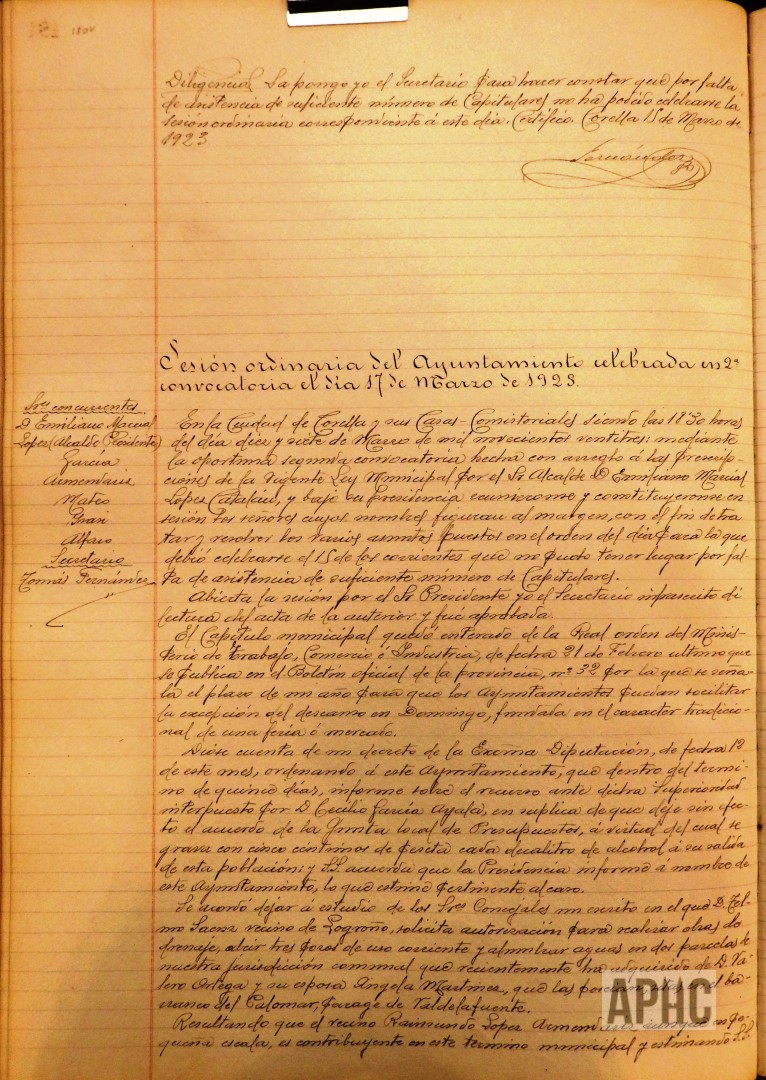 1800
Diligencia. La pongo yo el Secretario para hacer constar que por falta
de asistencia de suficiente número de Capitulares no ha podido celebrarse la
sesión ordinaria correspondiente á este día. Certifico. Corella 15 de Marzo de
1923
Fernández
Sesión ordinaria del Ayuntamiento celebrada en 2ª
convocatoria el día 17 de Marzo de 1923.
Sres concurrentes
D. Emiliano Marcial
Lopez (Alcalde Presidente)
García
Armendariz
Mateo
Gran
Alfaro
Secretario
Tomás Fernández
En la Ciudad de Corella y sus Casas-Consistoriales siendo las 18'30 horas
del día diez y siete de Marzo de mil novecientos ventitres: mediante
la oportuna segunda convocatoria hecha con arreglo á las prescrip-
ciones de la vigente Ley Municipal por el Sr Alcalde D Emiliano Marcial
Lopez Catalan, y bajo su Presidencia reunieronse y constituyeronse en
sesión los señores cuyos nombres figuran al margen, con el fin de tra
tar y resolver los varios asuntos puestos en el orden del día para la que
debió celebrarse el 15 de los corrientes que no pudo tener lugar por fal-
ta de asistencia de suficiente número de Capitulares.
Abierta la sesión por el Sr Presidente yo el Secretario infrascrito di
lectura del acta de la anterior y fué aprobada.
El Capítulo municipal quedó enterado de la Real orden del Minis-
terio de Trabajo, Comercio é Industria, de fecha 21 de Febrero ultimo que
se publica en el Boletin oficial de la provincia, nº 32 por la que se seña-
la el plazo de un año para que los Ayuntamientos puedan solicitar
la excepción del descanso en Domingo, fundada en el caracter tradicio-
nal de una feria ó mercado.
Diose cuenta de un decreto de la Excma Diputación, de fecha 12
de este mes, ordenando á este Ayuntamiento, que dentro del termi-
no de quince días, informe sobre el recurso ante dicha Superioridad
interpuesto por D Cecilio García Ayala, en suplica de que deje sin efec-
to el acuerdo de la Junta local de Presupuestos, á virtud del cual se
grava con cinco centimos de peseta cada decalitro de alcohol á su salida
de esta población: y S.S. acuerda que la Presidencia informe á nombre de
este Ayuntamiento, lo que estime pertinente al caso.
Se acordó dejar á estudio de los Sres Concejales un escrito en el que D. Tel-
mo Saenz vecino de Logroño, solicita autorización para realizar obras de
drenaje, abrir tres pozos de uso corriente y alumbrar aguas en dos parcelas de
nuestra jurisdicción comunal que recientemente ha adquirido de D. Va-
lero Ortega y su esposa Angela Martinez, que las poseían sitas en el ba-
rranco del Palomar, paraje de Valdelafuente.
Resultando que el vecino Raimundo Lopez Armendariz aunque en pe-
queña escala, es contribuyente en este termino municipal y estimando S.S.
APHC